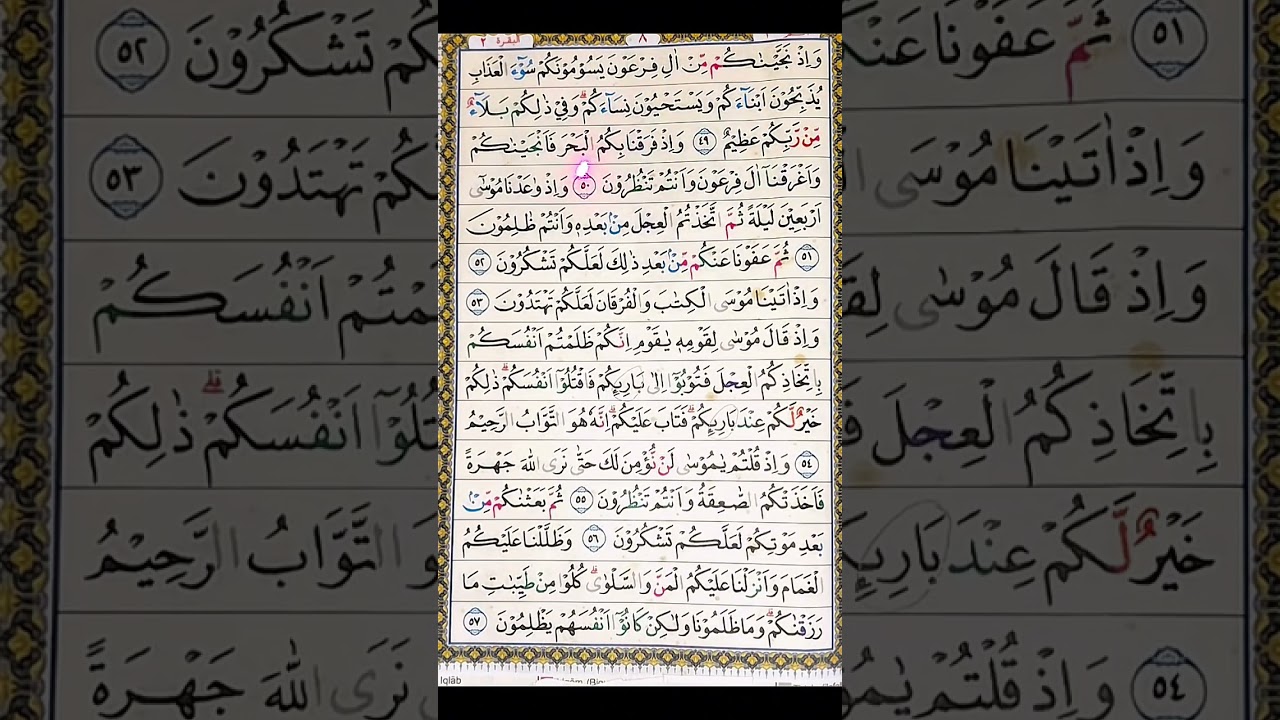 البقرة ٢
٨
وَاِذْ نَجَّيْنٰكُمْ مِّنْ اٰلِ فِرْعَوْنَ يَسُوْمُوْنَكُمْ سُوْٓءَ الْعَذَابِ
يُذَبِّحُوْنَ اَبْنَآءَكُمْ وَيَسْتَحْيُوْنَ نِسَآءَكُمْ ۗ وَفِيْ ذٰلِكُمْ بَلَآءٌ
مِّنْ رَّبِّكُمْ عَظِيْمٌ ٤٩ وَاِذْ فَرَقْنَا بِكُمُ الْبَحْرَ فَاَنْجَيْنٰكُمْ
وَاَغْرَقْنَآ اٰلَ فِرْعَوْنَ وَاَنْتُمْ تَنْظُرُوْنَ ٥٠ وَاِذْ وٰعَدْنَا مُوْسٰٓى
اَرْبَعِيْنَ لَيْلَةً ثُمَّ اتَّخَذْتُمُ الْعِجْلَ مِنْۢ بَعْدِهٖ وَاَنْتُمْ ظٰلِمُوْنَ
٥١ ثُمَّ عَفَوْنَا عَنْكُمْ مِّنْۢ بَعْدِ ذٰلِكَ لَعَلَّكُمْ تَشْكُرُوْنَ ٥٢
وَاِذْ اٰتَيْنَا مُوْسَى الْكِتٰبَ وَالْفُرْقَانَ لَعَلَّكُمْ تَهْتَدُوْنَ ٥٣
وَاِذْ قَالَ مُوْسٰى لِقَوْمِهٖ يٰقَوْمِ اِنَّكُمْ ظَلَمْتُمْ اَنْفُسَكُمْ
بِاتِّخَاذِكُمُ الْعِجْلَ فَتُوْبُوْٓا اِلٰى بَارِىِٕكُمْ فَاقْتُلُوْٓا اَنْفُسَكُمْ ۗ ذٰلِكُمْ
خَيْرٌ لَّكُمْ عِنْدَ بَارِىِٕكُمْ ۗ فَتَابَ عَلَيْكُمْ ۗ اِنَّهٗ هُوَ التَّوَّابُ الرَّحِيْمُ
٥٤ وَاِذْ قُلْتُمْ يٰمُوْسٰى لَنْ نُّؤْمِنَ لَكَ حَتّٰى نَرَى اللّٰهَ جَهْرَةً
فَاَخَذَتْكُمُ الصّٰعِقَةُ وَاَنْتُمْ تَنْظُرُوْنَ ٥٥ ثُمَّ بَعَثْنٰكُمْ مِّنْۢ
بَعْدِ مَوْتِكُمْ لَعَلَّكُمْ تَشْكُرُوْنَ ٥٦ وَظَلَّلْنَا عَلَيْكُمُ
الْغَمَامَ وَاَنْزَلْنَا عَلَيْكُمُ الْمَنَّ وَالسَّلْوٰى ۗ كُلُوْا مِنْ طَيِّبٰتِ مَا
رَزَقْنٰكُمْ ۗ وَمَا ظَلَمُوْنَا وَلٰكِنْ كَانُوْٓا اَنْفُسَهُمْ يَظْلِمُوْنَ ٥٧
Iqlāb